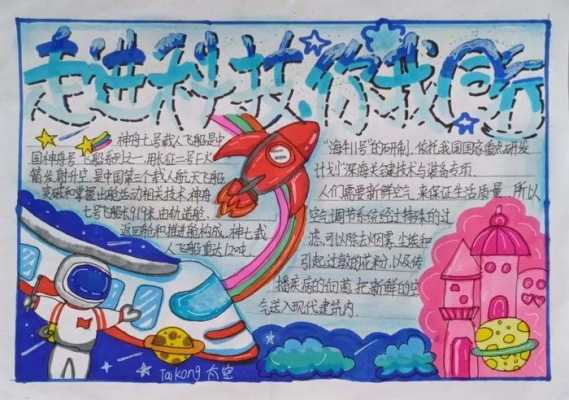 走进科技,你我同行
神舟七号载人飞船是中
国神舟号飞船系列之一,用长征二号F火
箭发射升空,是中国第三个载人航天飞船
突破和掌握出舱活动相关技术,神舟
七号飞船长9.19米由轨道舱、
返回舱和推进舱构成。神七载
人飞船重达12吨。
"海斗1号"的研制,依托我国国家重点研发
计划"深海关键技术与装备专项。
人们需要新鲜空气来保证生活质量,所以
空气调节系统经过特殊的过
滤,可以除去烟雾、尘埃和
引起过敏的花粉,以及传
播疾病的细菌,把新鲜的空
气送入现代建筑内.
Taikong 太空